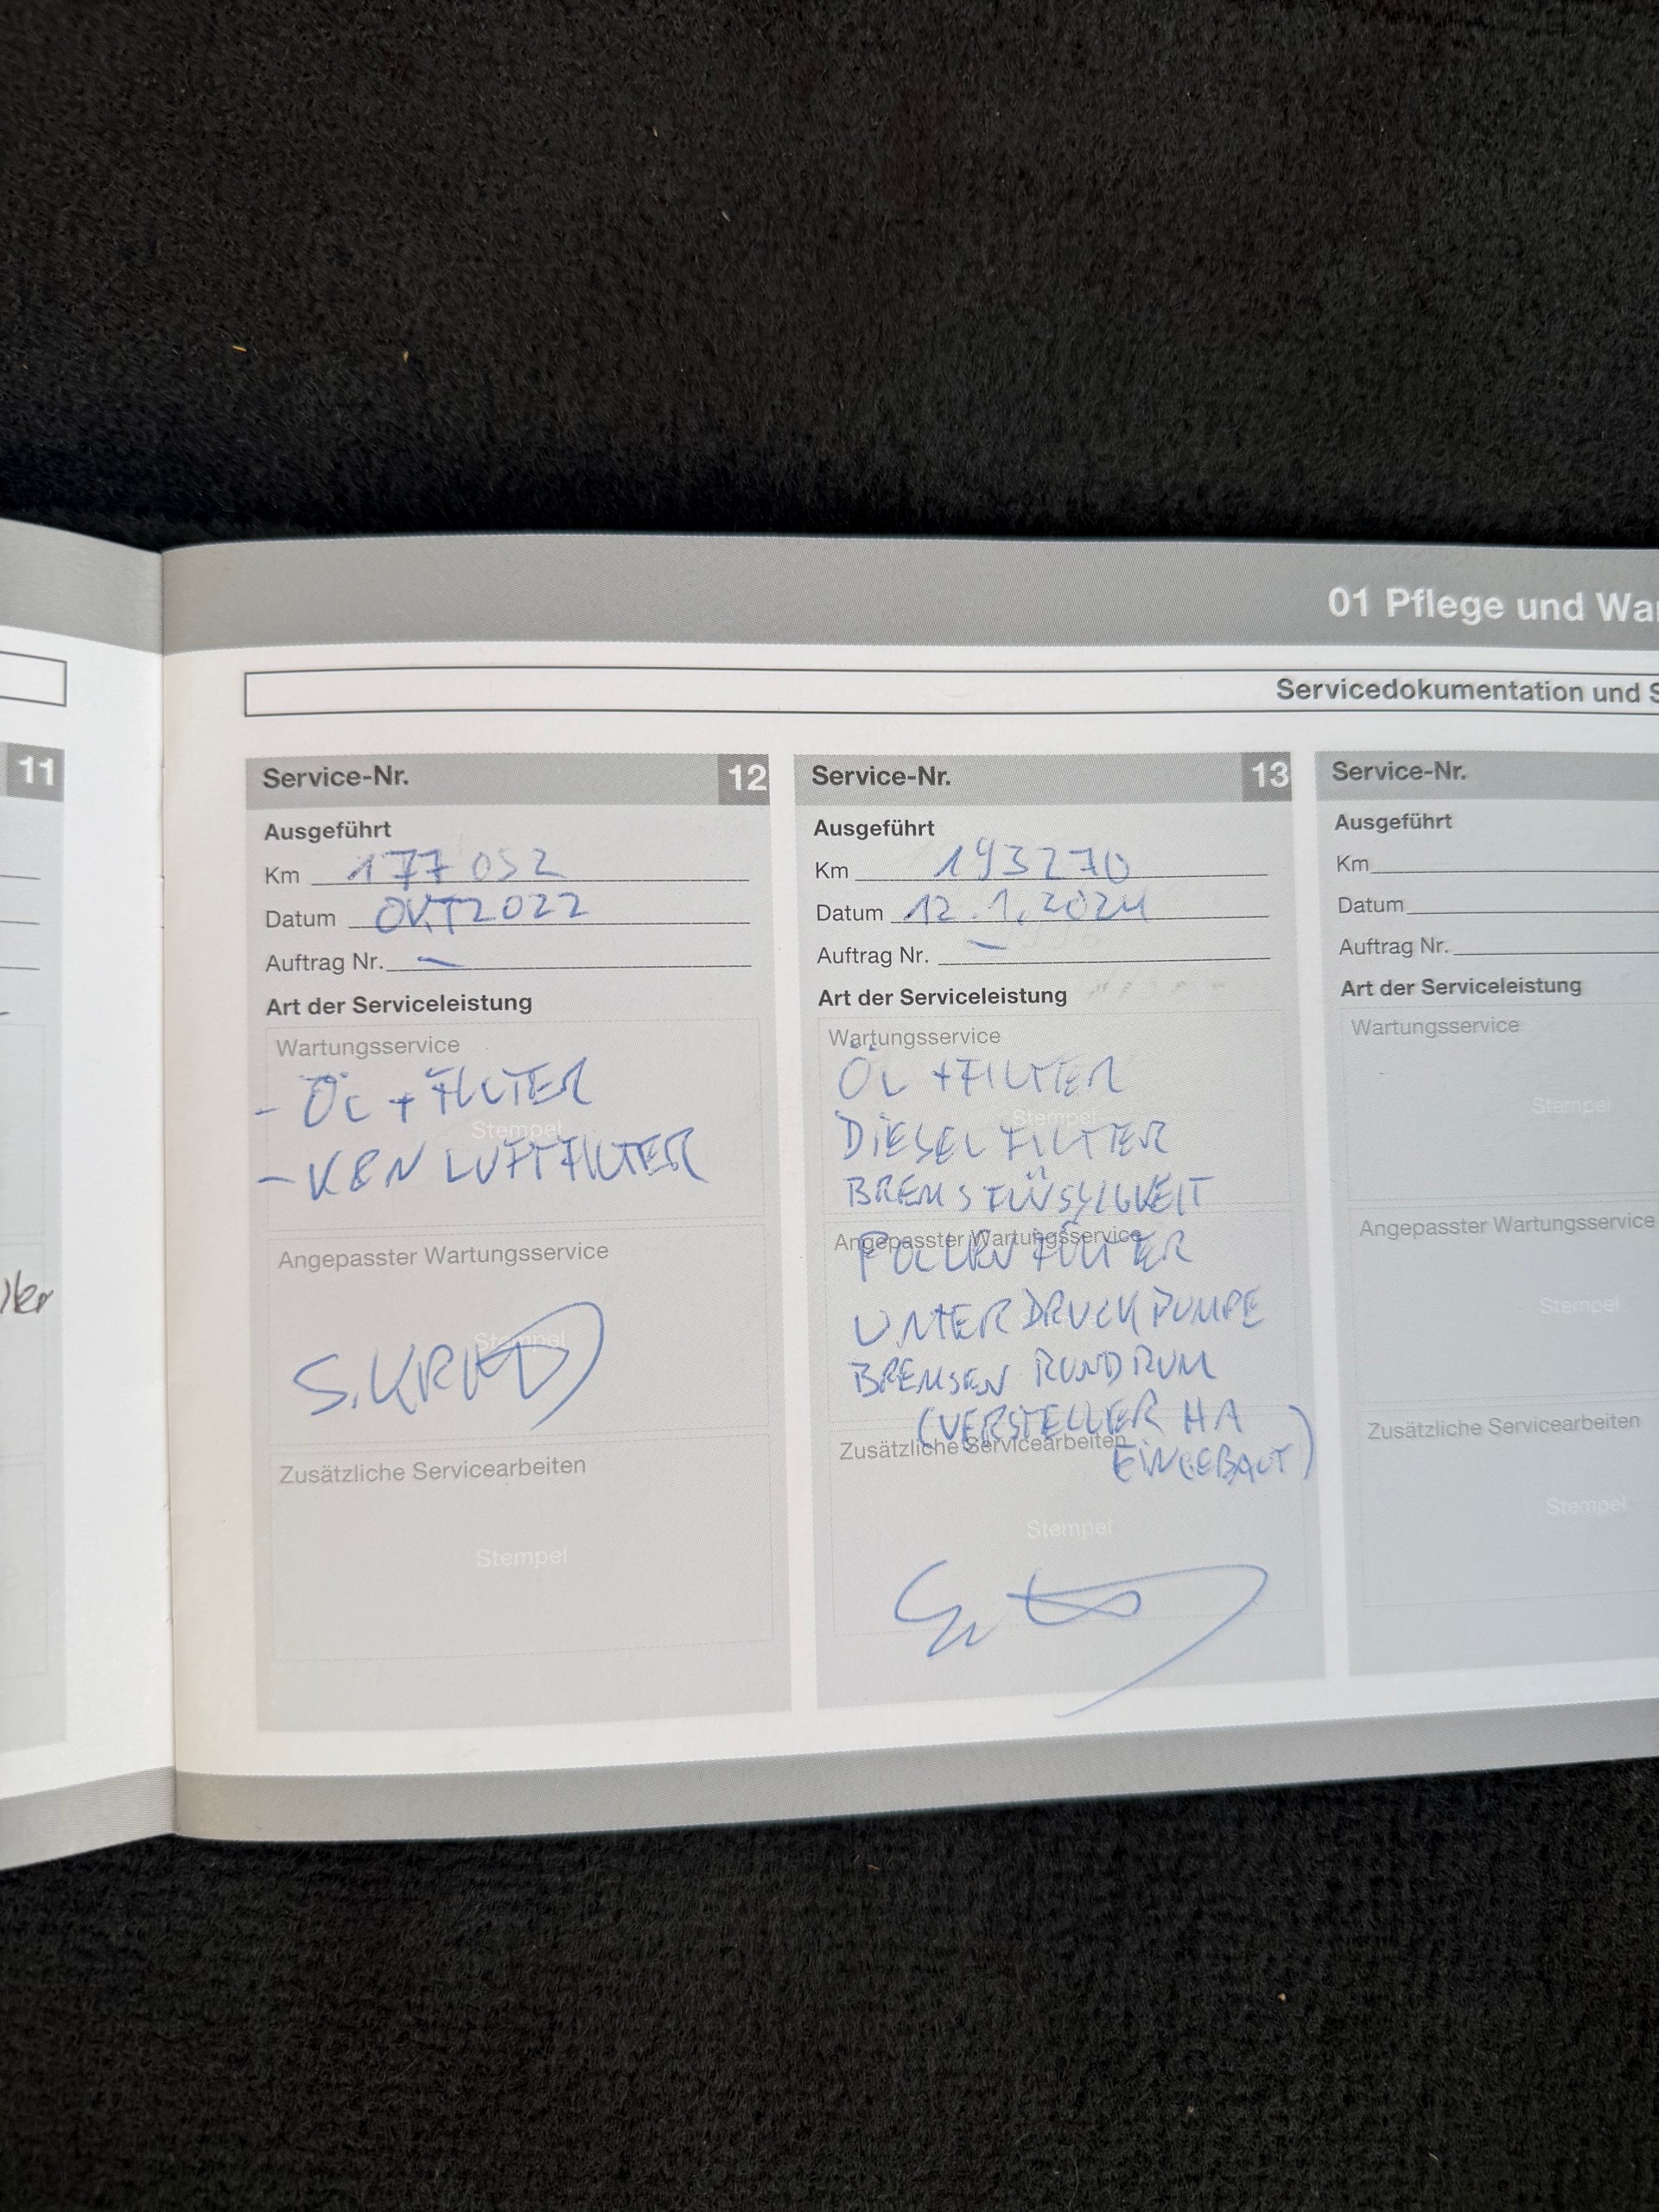 01 Pflege und War
Servicedokumentation und S
11
Service-Nr. 12
Ausgeführt
Km 177 052
Datum OKT 2022
Auftrag Nr. –
Art der Serviceleistung
Wartungsservice
- ÖL + FILTER
Stempel
- K&N LUFTFILTER
Angepasster Wartungsservice
Stempel
Zusätzliche Servicearbeiten
Stempel
Service-Nr. 13
Ausgeführt
Km 193270
Datum 12.1.2024
Auftrag Nr. –
Art der Serviceleistung
Wartungsservice
ÖL + FILTER
Stempel
DIESEL FILTER
Angepasster Wartungsservice
POLLEN FILTER
UNTERDRUCKPUMPE
BREMSEN RUNDRUM
(VERSTELLER HA
Zusätzliche Servicearbeiten
EINGEBAUT)
Stempel
Service-Nr.
Ausgeführt
Km
Datum
Auftrag Nr.
Art der Serviceleistung
Wartungsservice
Stempel
Angepasster Wartungsservice
Stempel
Zusätzliche Servicearbeiten
Stempel